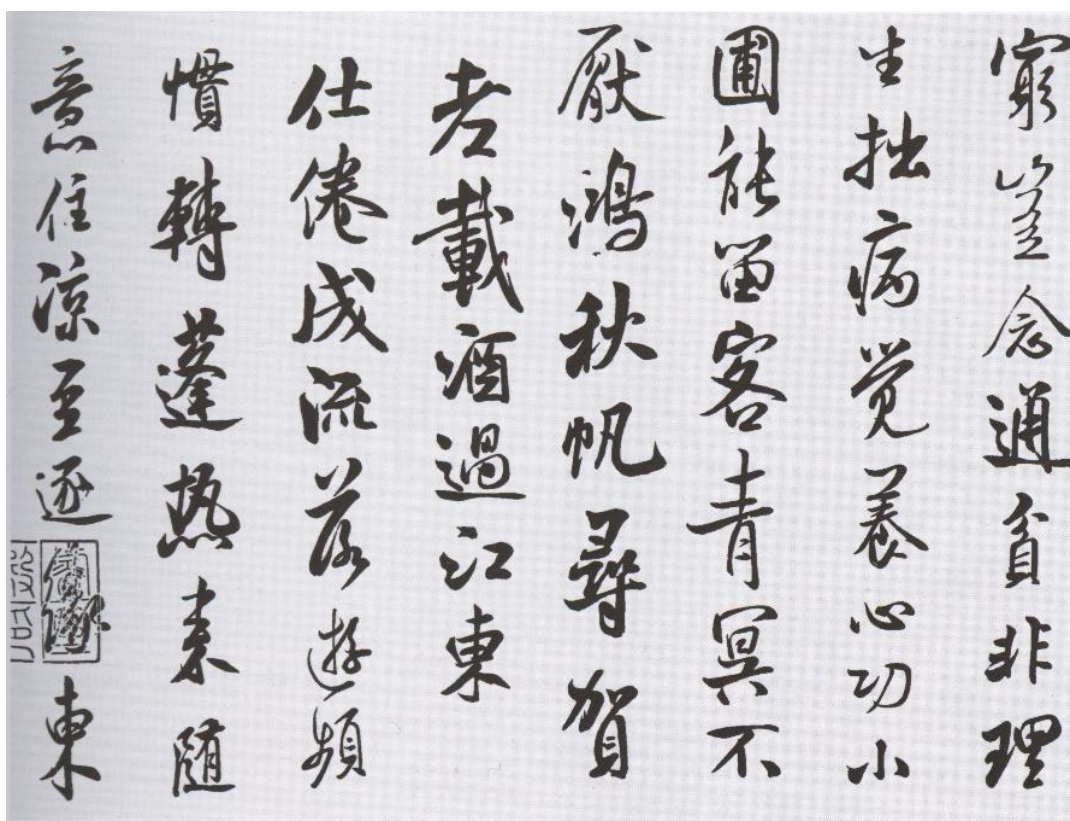 窮豈念通貧非理
生拙病覺養心功小
圃能留客青冥不
厭鴻秋帆尋賀
老載酒過江東
仕倦成流落遊頻
慣轉蓬熱來隨
意住涼至逐東